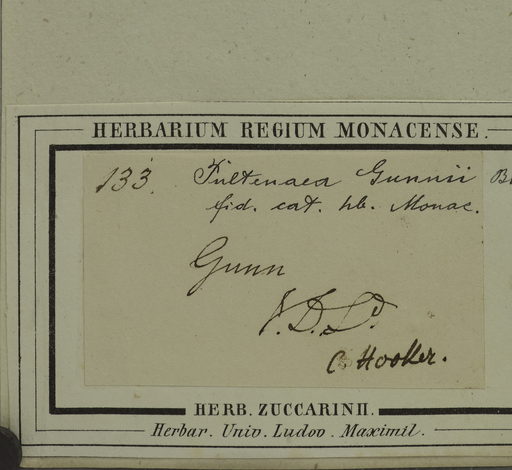 HERBARIUM REGIUM MONACENSE.
133. Pultenaea Gunnii
fid. cat. hb. Monac.
Gunn
V. D. Ld.
C. Hooker.
HERB. ZUCCARINII.
Herbar. Univ. Ludov. Maximil.